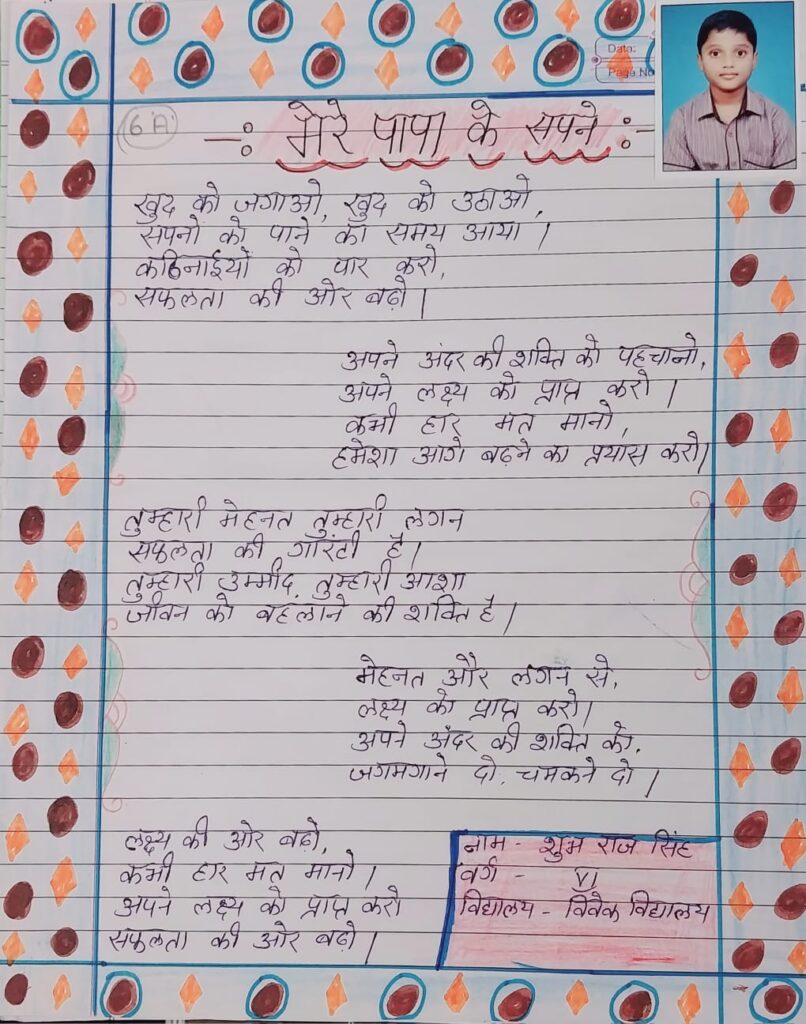 Date:
Page No
6 A
—: मेरे पापा के सपने :—
खुद को जगाओ, खुद को उठाओ,
सपनो को पाने का समय आया ।
कठिनाईयों को पार करो,
सफलता की ओर बढ़ो ।
अपने अंदर की शक्ति को पहचानो,
अपने लक्ष्य को प्राप्त करो ।
कभी हार मत मानो,
हमेशा आगे बढ़ने का प्रयास करो।
तुम्हारी मेहनत तुम्हारी लगन
सफलता की गारंटी है।
तुम्हारी उम्मीद, तुम्हारी आशा
जीवन को बहलाने की शक्ति है।
मेहनत और लगन से,
लक्ष्य को प्राप्त करो।
अपने अंदर की शक्ति को,
जगमगाने दो, चमकने दो ।
लक्ष्य की ओर बढ़ो,
कभी हार मत मानो ।
अपने लक्ष्य को प्राप्त करो
सफलता की ओर बढ़ो ।
नाम - शुभ राज सिंह
वर्ग - VI
विद्यालय - विवेक विद्यालय